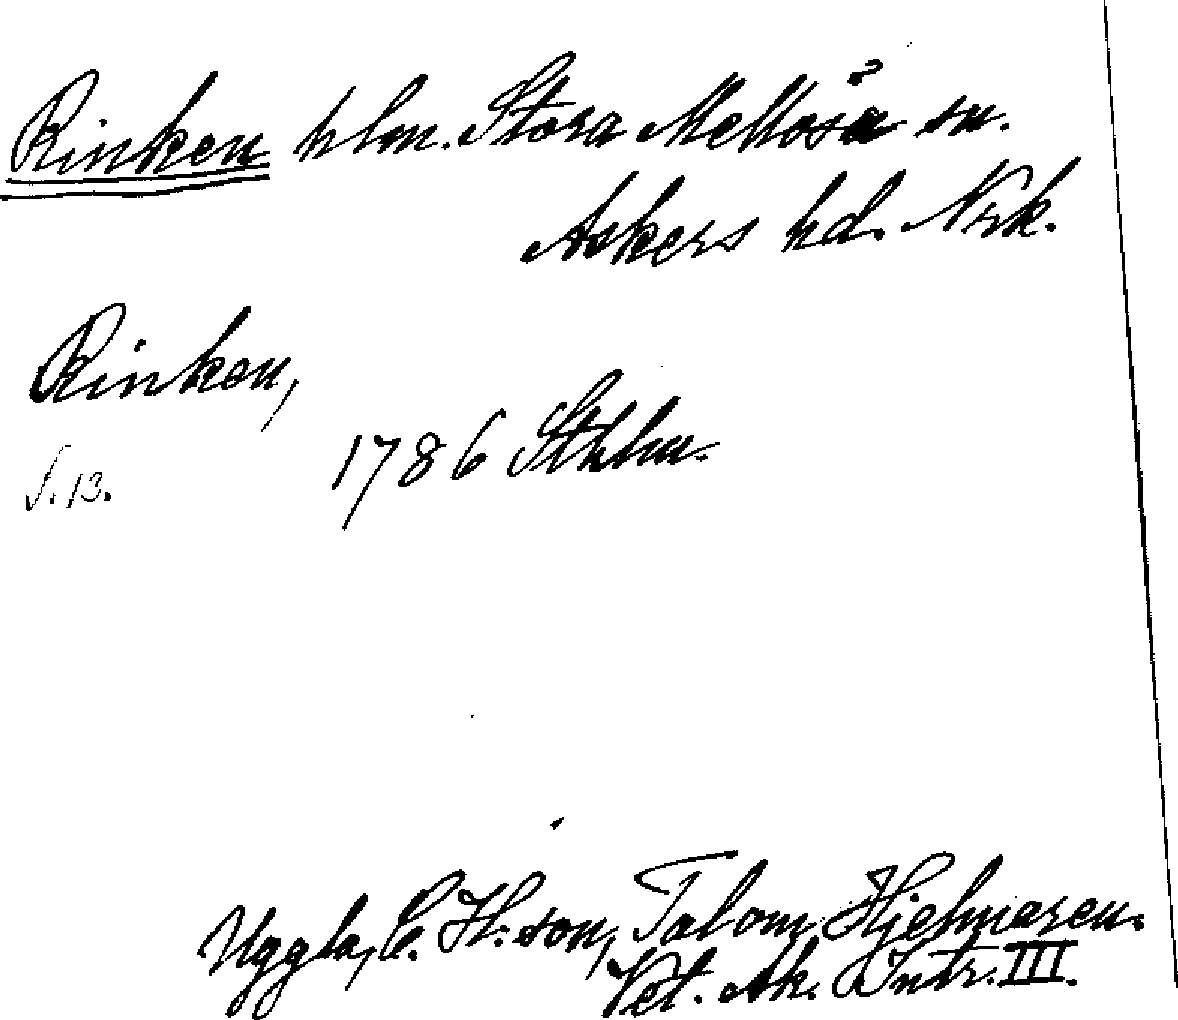 Rinken hlm. Stora Mellösa sn.
Askers hd. Nrk.
Rinken,
1786 Sthlm.
S. 13.
Uggla, C. H:son, Tal om Hjelmaren.
Vet. Ak. Intr. III.